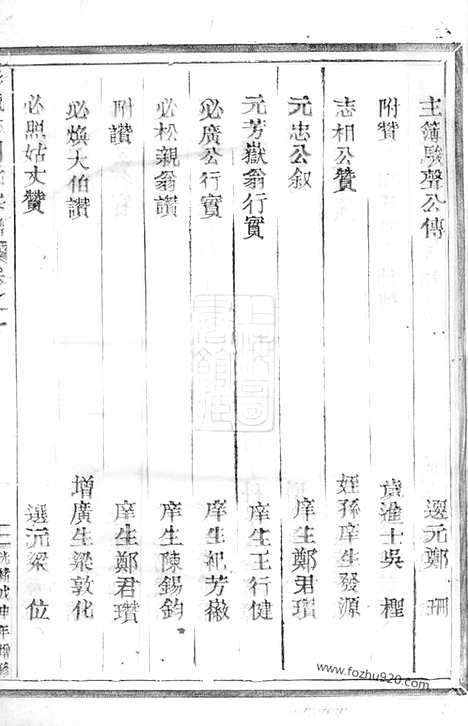 主簿駿聲公傳 選元鄭 珊
附贊 歲進士吳 樫
志相公贊 姪孫庠生發源
元忠公叙 庠生鄭君瓚
元芳嶽翁行實 庠生王行健
必廣公行實 庠生祀芳徽
必松親翁讃 庠生陳錫鈞
附讃 庠生鄭君瓚
必煥大伯讃 增廣生梁敦化
必照姑丈贊 選元梁 位
光緒戊申年增修
https://www.fozhu920.com/